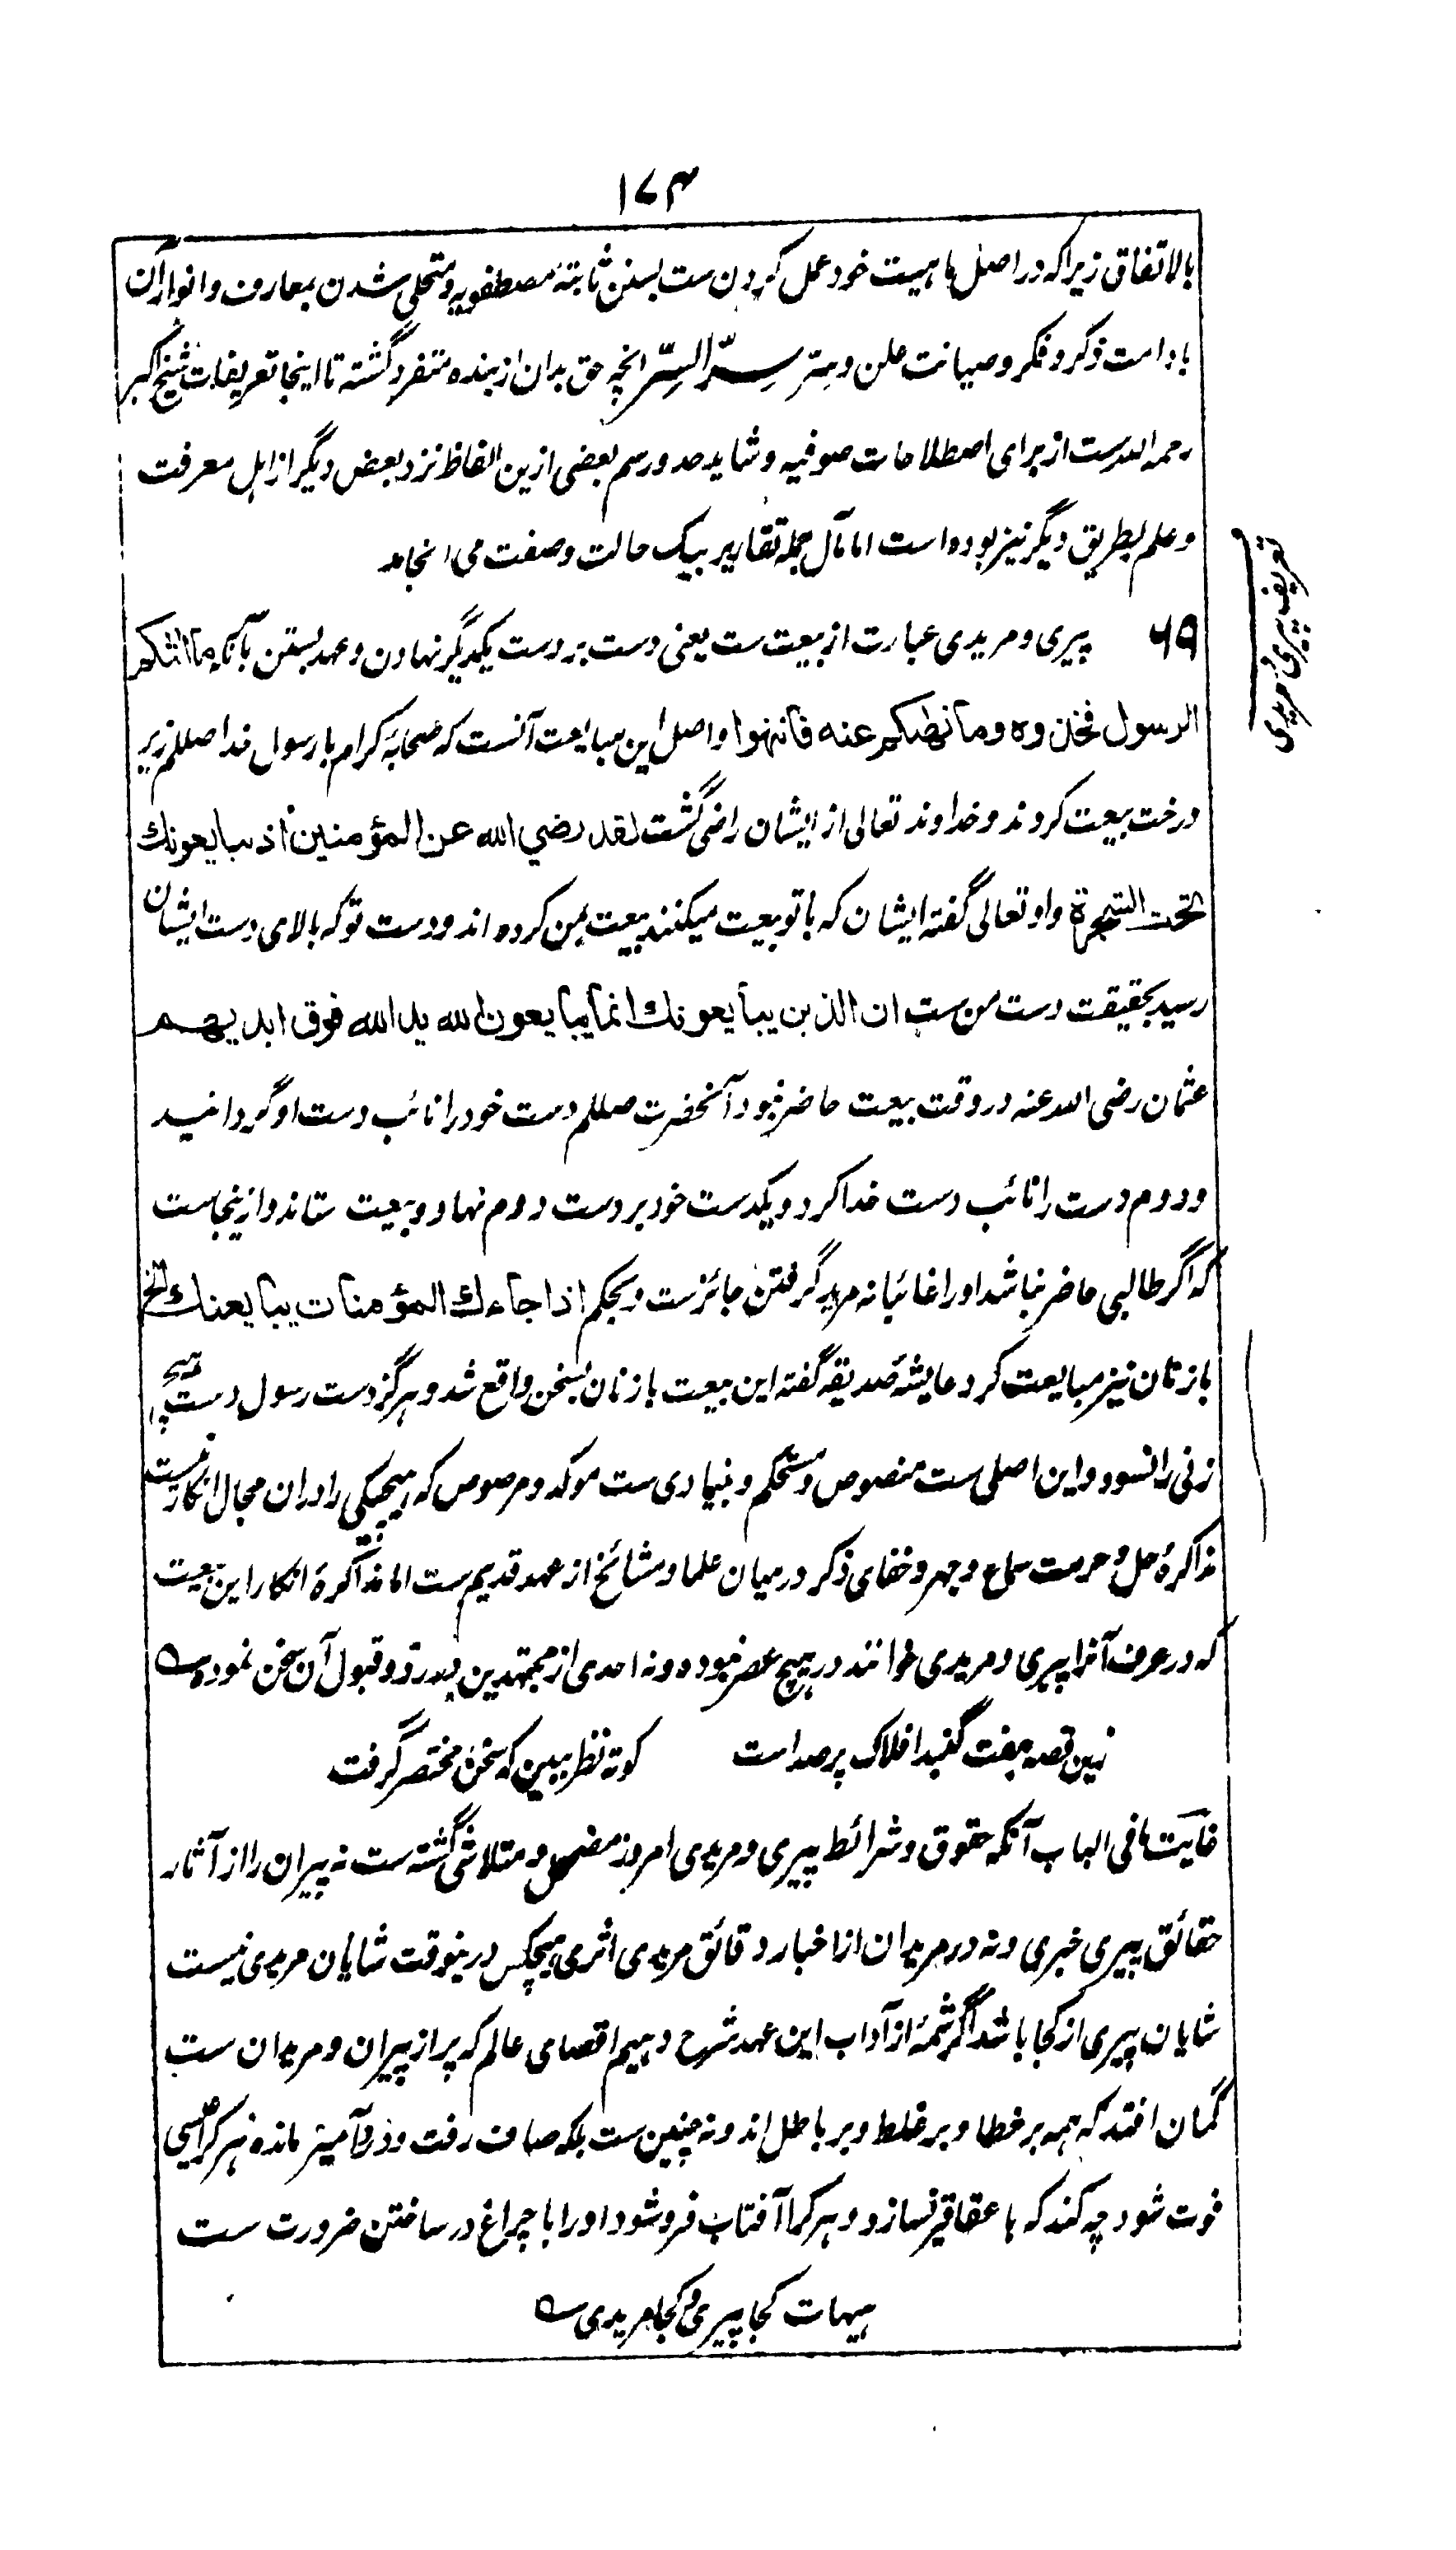 ۱۷۳
بالاتفاق زیراکه در اصل ماهیت خود عمل کردن ست بسنن ثابتهٔ مصطفویه و متحلی شدن بمعارف و انوار آن
با دامت ذکر و فکر و صیانت علن و سر سِرُّ السِّرّ انچه حق بدان از بنده متفرد گشته تا اینجا تعریفات شیخ اکبر
رحمه الله ست از برای اصطلاحات صوفیه و شاید حد و رسم بعضی ازین الفاظ نزد بعض دیگر از اهل معرفت
و علم بطریق دیگر نیز بوده است اما مآل جمله تقاریر بیک حالت و صفت می انجامد
تعریف پیری و مریدی
۶۹ پیری و مریدی عبارت از بیعت ست یعنی دست بر دست یکدیگر نهادن و عهد بستن بآنکه ما اتٰکم
الرسول فخذوه و ما نهٰکم عنه فانتهوا و اصل این مبایعت آنست که صحابهٔ کرام با رسول خدا صللم زیر
درخت بیعت کردند و خداوند تعالی از ایشان راضی گشت لقد رضي الله عن المؤمنین اذ یبایعونك
تحت الشجرة و او تعالی گفته ایشان که با تو بیعت میکنند بیعت بمن کرده اند و دست تو که بالای دست ایشان
رسید بحقیقت دست من ست ان الذین یبایعونك انما یبایعون الله ید الله فوق ایدیهم
عثمان رضی الله عنه در وقت بیعت حاضر نبود آنحضرت صللم دست خود را نائب دست او گردانید
و دوم دست را نائب دست خدا کرد و یکدست خود بر دست دوم نهاد و بیعت ستاند و ازینجاست
که اگر طالبی حاضر نباشد او را غائبانه مرید گرفتن جائزست و بحکم اذا جاءك المؤمنات یبایعنك الخ
با زنان نیز مبایعت کرد عایشهٔ صدیقه گفته این بیعت با زنان بسخن واقع شد و هرگز دست رسول دست هیچ
زنی را نسود و این اصلی ست منصوص و مستحکم و بنیادی ست موکد و مرصوص که هیچیکی را دران مجال انکار نیست
مذاکرهٔ حل و حرمت سماع و جهر و خفای ذکر درمیان علما و مشائخ از عهد قدیم ست اما مذاکرهٔ انکار این بیعت
که در عرف آنرا پیری و مریدی خوانند در هیچ عصر نبوده و نه احدی از مجتهدین برد و قبول آن سخن نموده ؎
زین قصه هفت گنبد افلاک پر صداست    کوته نظر ببین که سخن مختصر گرفت
غایت ما فی الباب آنکه حقوق و شرائط پیری و مریدی امروز مضمحل و متلاشی گشته ست نه پیران را از آثار
حقائق پیری خبری و نه در مریدان از اخبار دقائق مریدی اثری هیچکس درینوقت شایان مریدی نیست
شایان پیری از کجا باشد اگر شمهٔ از آداب این عهد شرح دهیم اقصای عالم که پر از پیران و مریدان ست
گمان افتد که همه بر خطا و بر غلط و بر باطل اند و نه چنین ست بلکه صاف رفت و درد آمیز مانده هر کرا عیسی
فوت شود چه کند که با عقاقیر نسازد و هر کرا آفتاب فروشود او را با چراغ در ساختن ضرورت ست
هیهات کجا پیری و کجا مریدی ؎